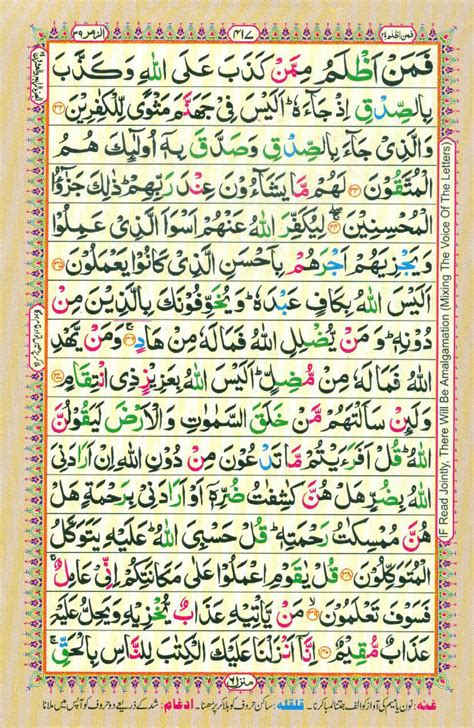 فمن اظلم ۲۴
۴۱۷
الزمر ۳۹
فَمَنْ اَظْلَمُ مِمَّنْ كَذَبَ عَلَى اللّٰهِ وَكَذَّبَ
بِالصِّدْقِ اِذْ جَآءَهٗ ؕ اَلَیْسَ فِیْ جَهَنَّمَ مَثْوًی لِّلْكٰفِرِیْنَ ﴿۳۲﴾
وَالَّذِیْ جَآءَ بِالصِّدْقِ وَصَدَّقَ بِهٖۤ اُولٰٓىِٕكَ هُمُ
الْمُتَّقُوْنَ ﴿۳۳﴾ لَهُمْ مَّا یَشَآءُوْنَ عِنْدَ رَبِّهِمْ ؕ ذٰلِكَ جَزٰٓؤُا
الْمُحْسِنِیْنَ ﴿۳۴﴾ لِیُكَفِّرَ اللّٰهُ عَنْهُمْ اَسْوَاَ الَّذِیْ عَمِلُوْا
وَیَجْزِیَهُمْ اَجْرَهُمْ بِاَحْسَنِ الَّذِیْ كَانُوْا یَعْمَلُوْنَ ﴿۳۵﴾
اَلَیْسَ اللّٰهُ بِكَافٍ عَبْدَهٗ ؕ وَیُخَوِّفُوْنَكَ بِالَّذِیْنَ مِنْ
دُوْنِهٖ ؕ وَمَنْ یُّضْلِلِ اللّٰهُ فَمَا لَهٗ مِنْ هَادٍ ﴿۳۶﴾ وَمَنْ یَّهْدِ
اللّٰهُ فَمَا لَهٗ مِنْ مُّضِلٍّ ؕ اَلَیْسَ اللّٰهُ بِعَزِیْزٍ ذِی انْتِقَامٍ ﴿۳۷﴾
وَلَىِٕنْ سَاَلْتَهُمْ مَّنْ خَلَقَ السَّمٰوٰتِ وَالْاَرْضَ لَیَقُوْلُنَّ
اللّٰهُ ؕ قُلْ اَفَرَءَیْتُمْ مَّا تَدْعُوْنَ مِنْ دُوْنِ اللّٰهِ اِنْ اَرَادَنِیَ
اللّٰهُ بِضُرٍّ هَلْ هُنَّ كٰشِفٰتُ ضُرِّهٖۤ اَوْ اَرَادَنِیْ بِرَحْمَةٍ هَلْ
هُنَّ مُمْسِكٰتُ رَحْمَتِهٖ ؕ قُلْ حَسْبِیَ اللّٰهُ ؕ عَلَیْهِ یَتَوَكَّلُ
الْمُتَوَكِّلُوْنَ ﴿۳۸﴾ قُلْ یٰقَوْمِ اعْمَلُوْا عَلٰی مَكَانَتِكُمْ اِنِّیْ عَامِلٌ ۚ
فَسَوْفَ تَعْلَمُوْنَ ﴿۳۹﴾ مَنْ یَّاْتِیْهِ عَذَابٌ یُّخْزِیْهِ وَیَحِلُّ عَلَیْهِ
عَذَابٌ مُّقِیْمٌ ﴿۴۰﴾ اِنَّاۤ اَنْزَلْنَا عَلَیْكَ الْكِتٰبَ لِلنَّاسِ بِالْحَقِّ ۚ
(IF Read Jointly, There Will Be Amalgamation (Mixing The Voice Of The Letters)
منزل ۶
غنه: نون یا میم کی آواز کو الف جتنا لمبا کرنا۔ قلقله: ساکن حروف کو ہلا کر پڑھنا۔ ادغام: شد کے ذریعے دو حروف کو آپس میں ملانا